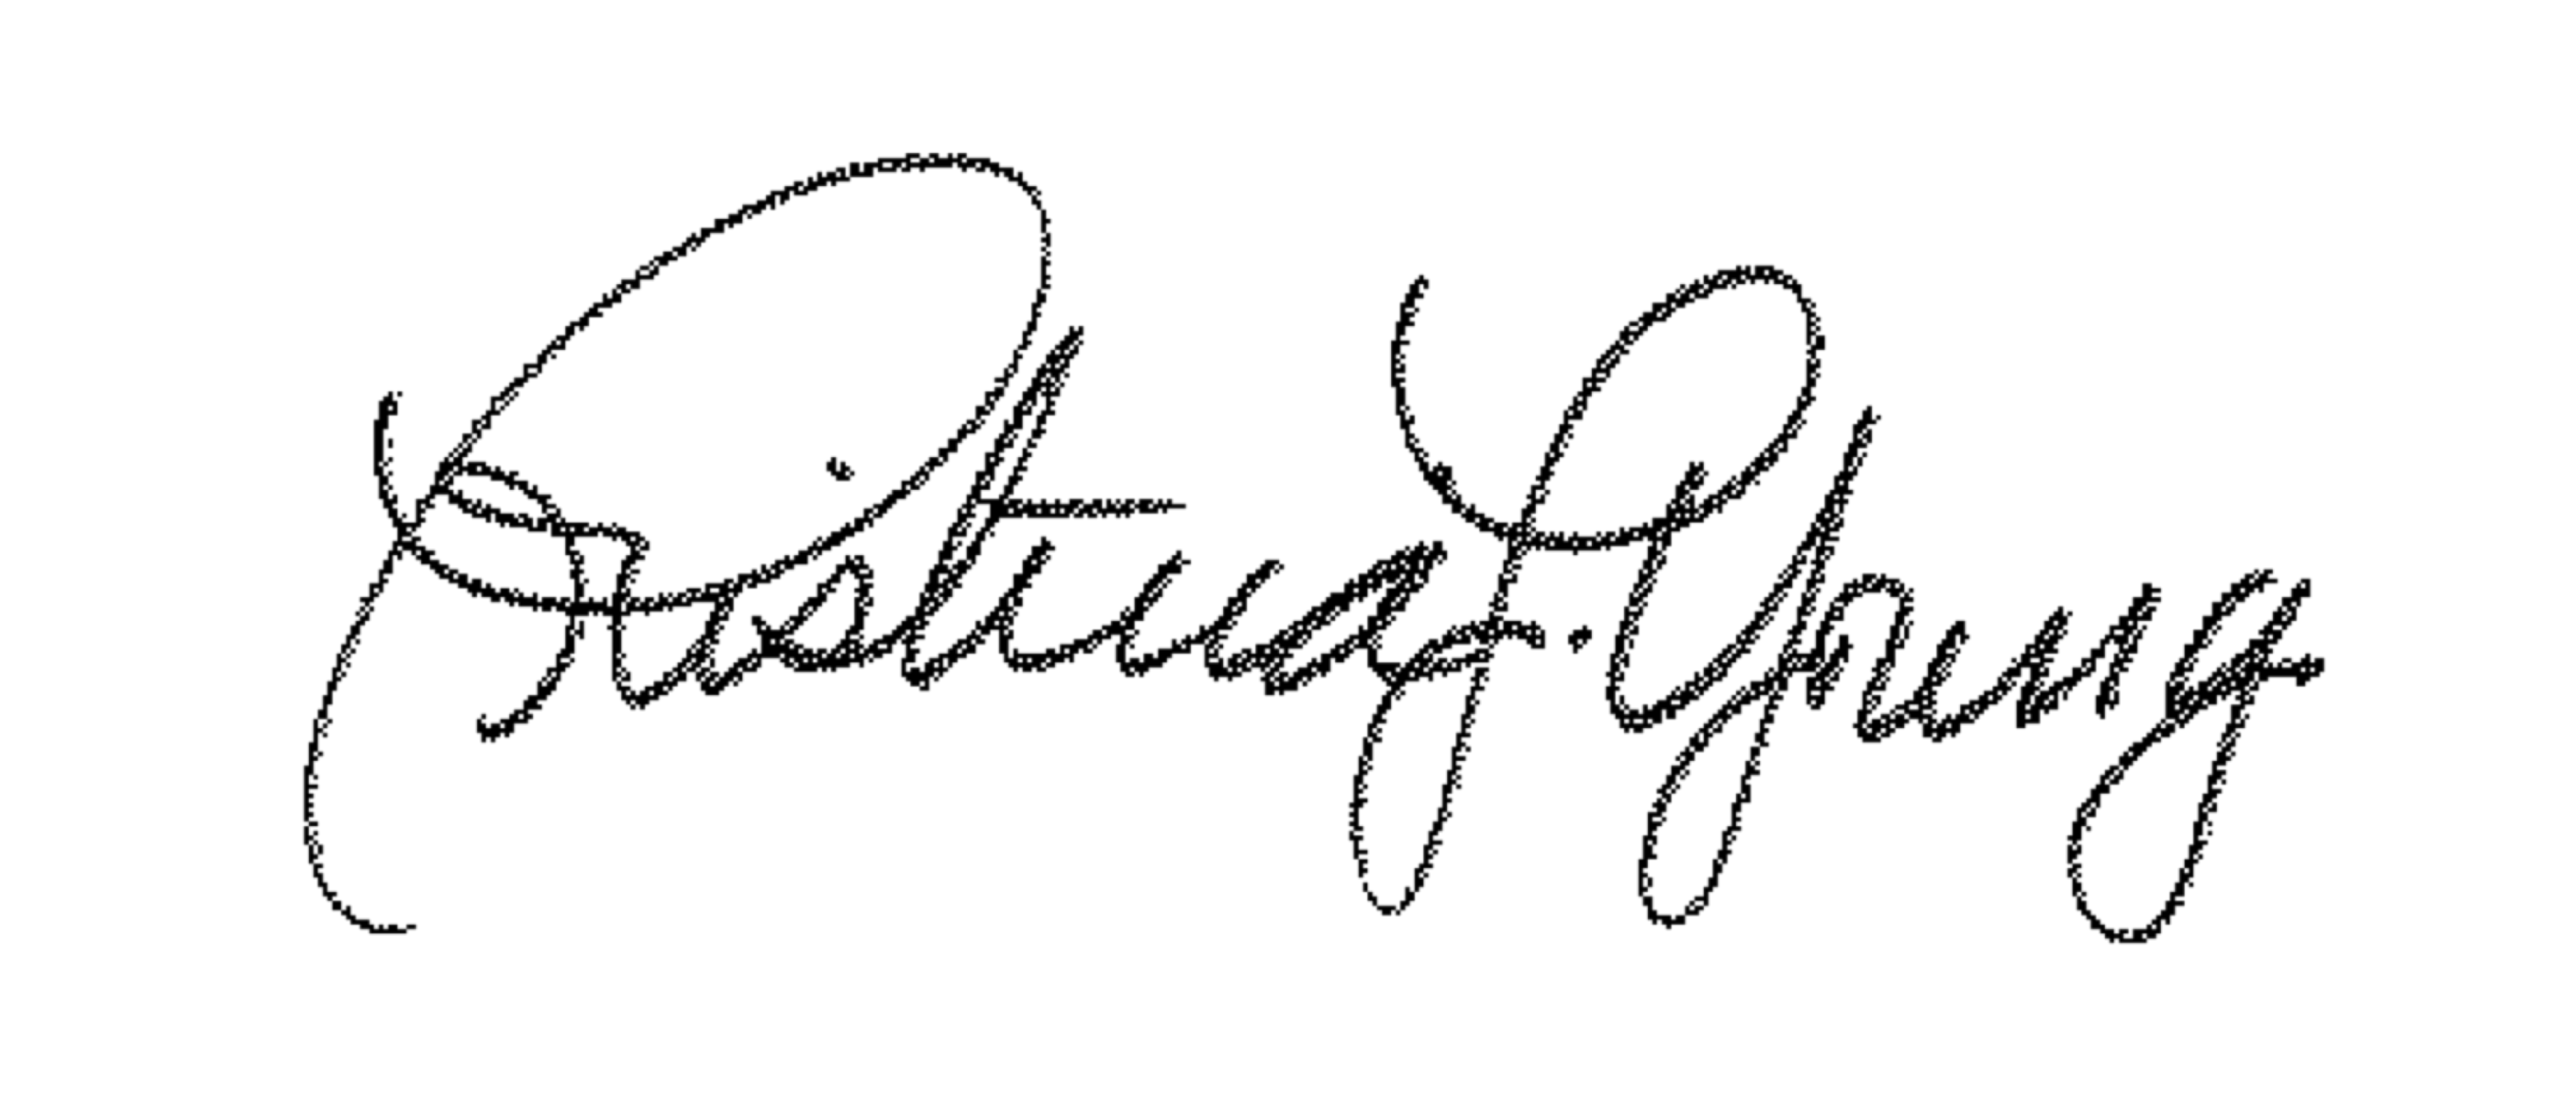 Kristina J. Young